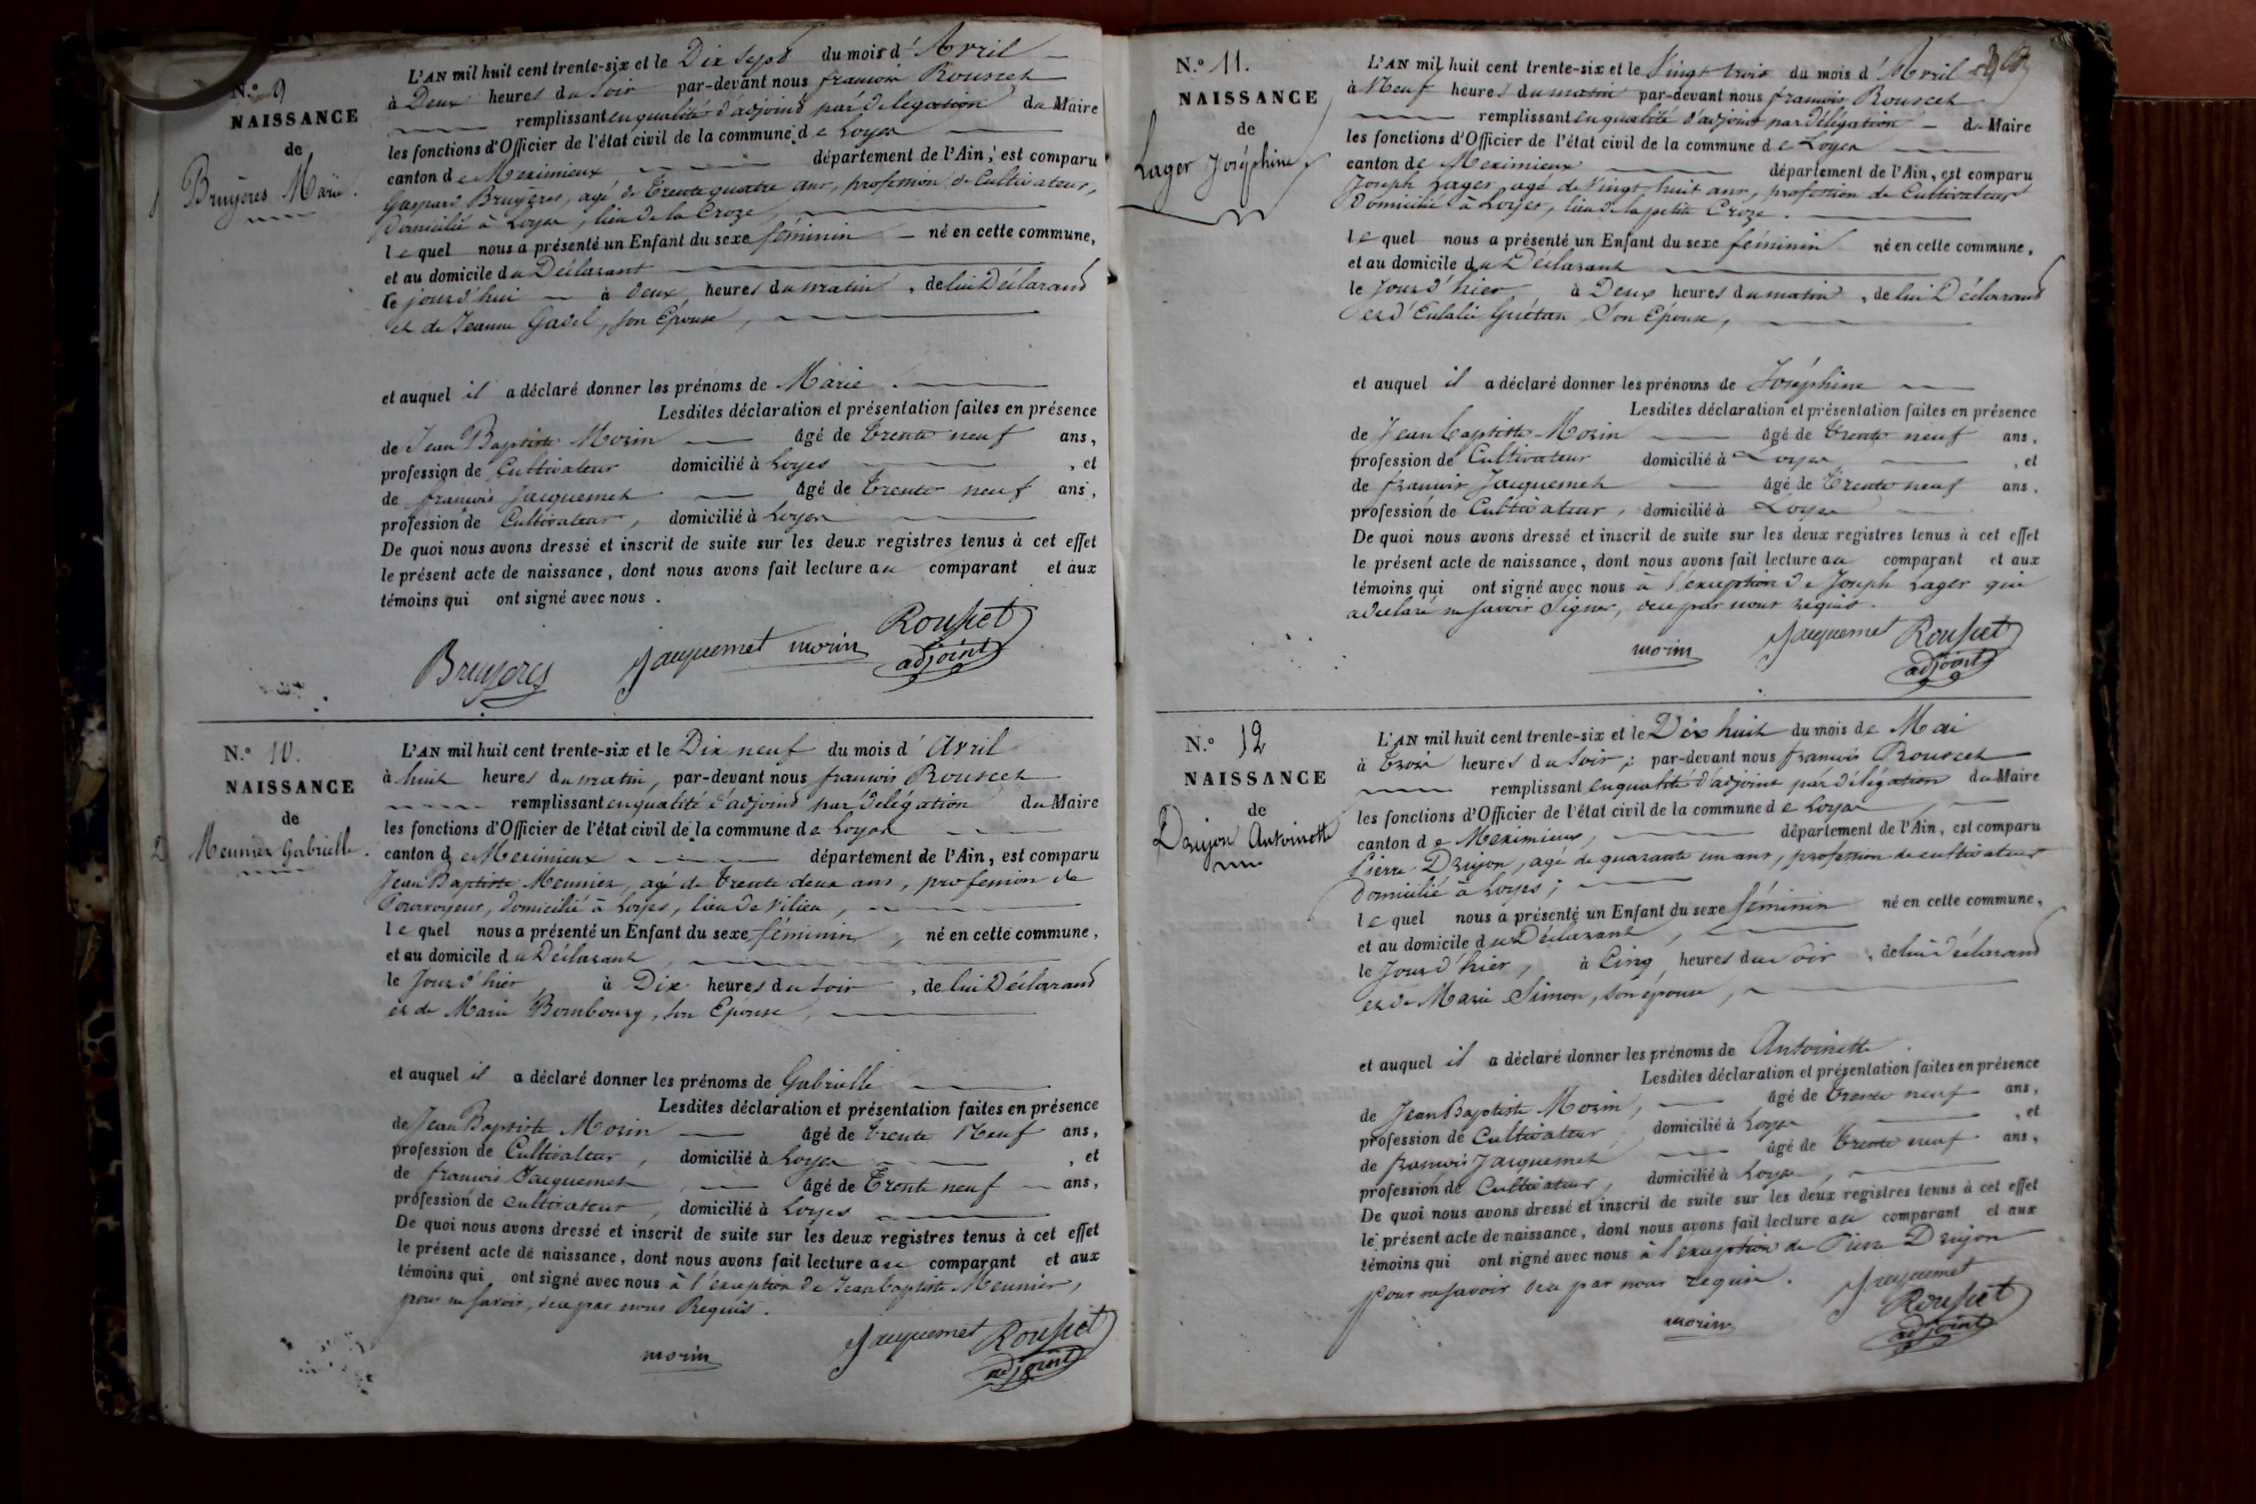 N.º 9
NAISSANCE
de
Bruyeres Marie.
L'AN mil huit cent trente-six et le Dix Sept du mois d'Avril
à Deux heures du Soir par-devant nous francois Rousset
remplissant en qualité d'adjoint par délégation du Maire
les fonctions d'Officier de l'état civil de la commune de Loyes
canton de Meximieux département de l'Ain, est comparu
Gaspard Bruyeres, agé de Trente quatre ans, profession de Cultivateur,
domicilié à Loyes, lieu de la Croze,
lequel nous a présenté un Enfant du sexe féminin né en cette commune,
et au domicile du Déclarant
le jourd'hui à deux heures du matin, de lui Déclarant
et de Jeanne Gavel, son Epouse,
et auquel il a déclaré donner les prénoms de Marie.
Lesdites déclaration et présentation faites en présence
de Jean Baptiste Morin âgé de trente neuf ans,
profession de Cultivateur domicilié à Loyes, et
de francois Jacquemet âgé de trente neuf ans,
profession de Cultivateur, domicilié à Loyes
De quoi nous avons dressé et inscrit de suite sur les deux registres tenus à cet effet
le présent acte de naissance, dont nous avons fait lecture au comparant et aux
témoins qui ont signé avec nous.
Bruyeres Jacquemet morin Rousset
adjoint
N.º 10.
NAISSANCE
de
Meunier Gabrielle.
L'AN mil huit cent trente-six et le Dix neuf du mois d'Avril
à huit heures du matin, par-devant nous francois Rousset
remplissant en qualité d'adjoint par délégation du Maire
les fonctions d'Officier de l'état civil de la commune de Loyes
canton de Meximieux département de l'Ain, est comparu
Jean Baptiste Meunier, agé de trente deux ans, profession de
Pourvoyeur, domicilié à Loyes, lieu de Vilieu,
lequel nous a présenté un Enfant du sexe féminin, né en cette commune,
et au domicile du Déclarant,
le Jour d'hier à Dix heures du soir, de lui Déclarant
et de Marie Bombourg, son Epouse,
et auquel il a déclaré donner les prénoms de Gabrielle
Lesdites déclaration et présentation faites en présence
de Jean Baptiste Morin âgé de trente Neuf ans,
profession de Cultivateur, domicilié à Loyes, et
de francois Jacquemet âgé de Trente neuf ans,
profession de cultivateur, domicilié à Loyes
De quoi nous avons dressé et inscrit de suite sur les deux registres tenus à cet effet
le présent acte de naissance, dont nous avons fait lecture au comparant et aux
témoins qui ont signé avec nous à l'exception de Jean baptiste Meunier,
pour ne savoir, de ce par nous Requis.
morin Jacquemet Rousset
adjoint
N.º 11.
NAISSANCE
de
Lager Joséphine
L'AN mil huit cent trente-six et le Vingt trois du mois d'Avril
à Neuf heures du matin par-devant nous francois Rousset
remplissant en qualité d'adjoint par délégation du Maire
les fonctions d'Officier de l'état civil de la commune de Loyes
canton de Meximieux département de l'Ain, est comparu
Joseph Lager agé de Vingt huit ans, profession de Cultivateur
domicilié à Loyes, lieu de la petite Croze.
lequel nous a présenté un Enfant du sexe féminin né en cette commune,
et au domicile du Déclarant
le Jour d'hier à Deux heures du matin, de lui Déclarant
et d'Eulalie Guétan, Son Epouse,
et auquel il a déclaré donner les prénoms de Joséphine
Lesdites déclaration et présentation faites en présence
de Jean baptiste Morin âgé de trente neuf ans,
profession de Cultivateur domicilié à Loyes, et
de francois Jacquemet âgé de Trente neuf ans,
profession de Cultivateur, domicilié à Loyes
De quoi nous avons dressé et inscrit de suite sur les deux registres tenus à cet effet
le présent acte de naissance, dont nous avons fait lecture au comparant et aux
témoins qui ont signé avec nous à l'exception de Joseph Lager qui
a déclaré ne savoir Signer, de ce par nous requis.
morin Jacquemet Rousset
adjoint
N.º 12
NAISSANCE
de
Drujon Antoinette
L'AN mil huit cent trente-six et le Dix huit du mois de Mai
à trois heures du Soir, par-devant nous francois Rousset
remplissant en qualité d'adjoint par délégation du Maire
les fonctions d'Officier de l'état civil de la commune de Loyes
canton de Meximieux, département de l'Ain, est comparu
Pierre Drujon, agé de quarante un ans, profession de cultivateur
domicilié à Loyes;
lequel nous a présenté un Enfant du sexe féminin né en cette commune,
et au domicile du Déclarant,
le Jour d'hier, à Cinq heures du soir, de lui déclarant
et de Marie Simon, son épouse,
et auquel il a déclaré donner les prénoms de Antoinette.
Lesdites déclaration et présentation faites en présence
de Jean Baptiste Morin, âgé de trente neuf ans,
profession de Cultivateur, domicilié à Loyes, et
de francois Jacquemet âgé de trente neuf ans,
profession de Cultivateur, domicilié à Loyes,
De quoi nous avons dressé et inscrit de suite sur les deux registres tenus à cet effet
le présent acte de naissance, dont nous avons fait lecture au comparant et aux
témoins qui ont signé avec nous à l'exception de Pierre Drujon
pour ne savoir de ce par nous requis.
morin Jacquemet
Rousset
adjoint